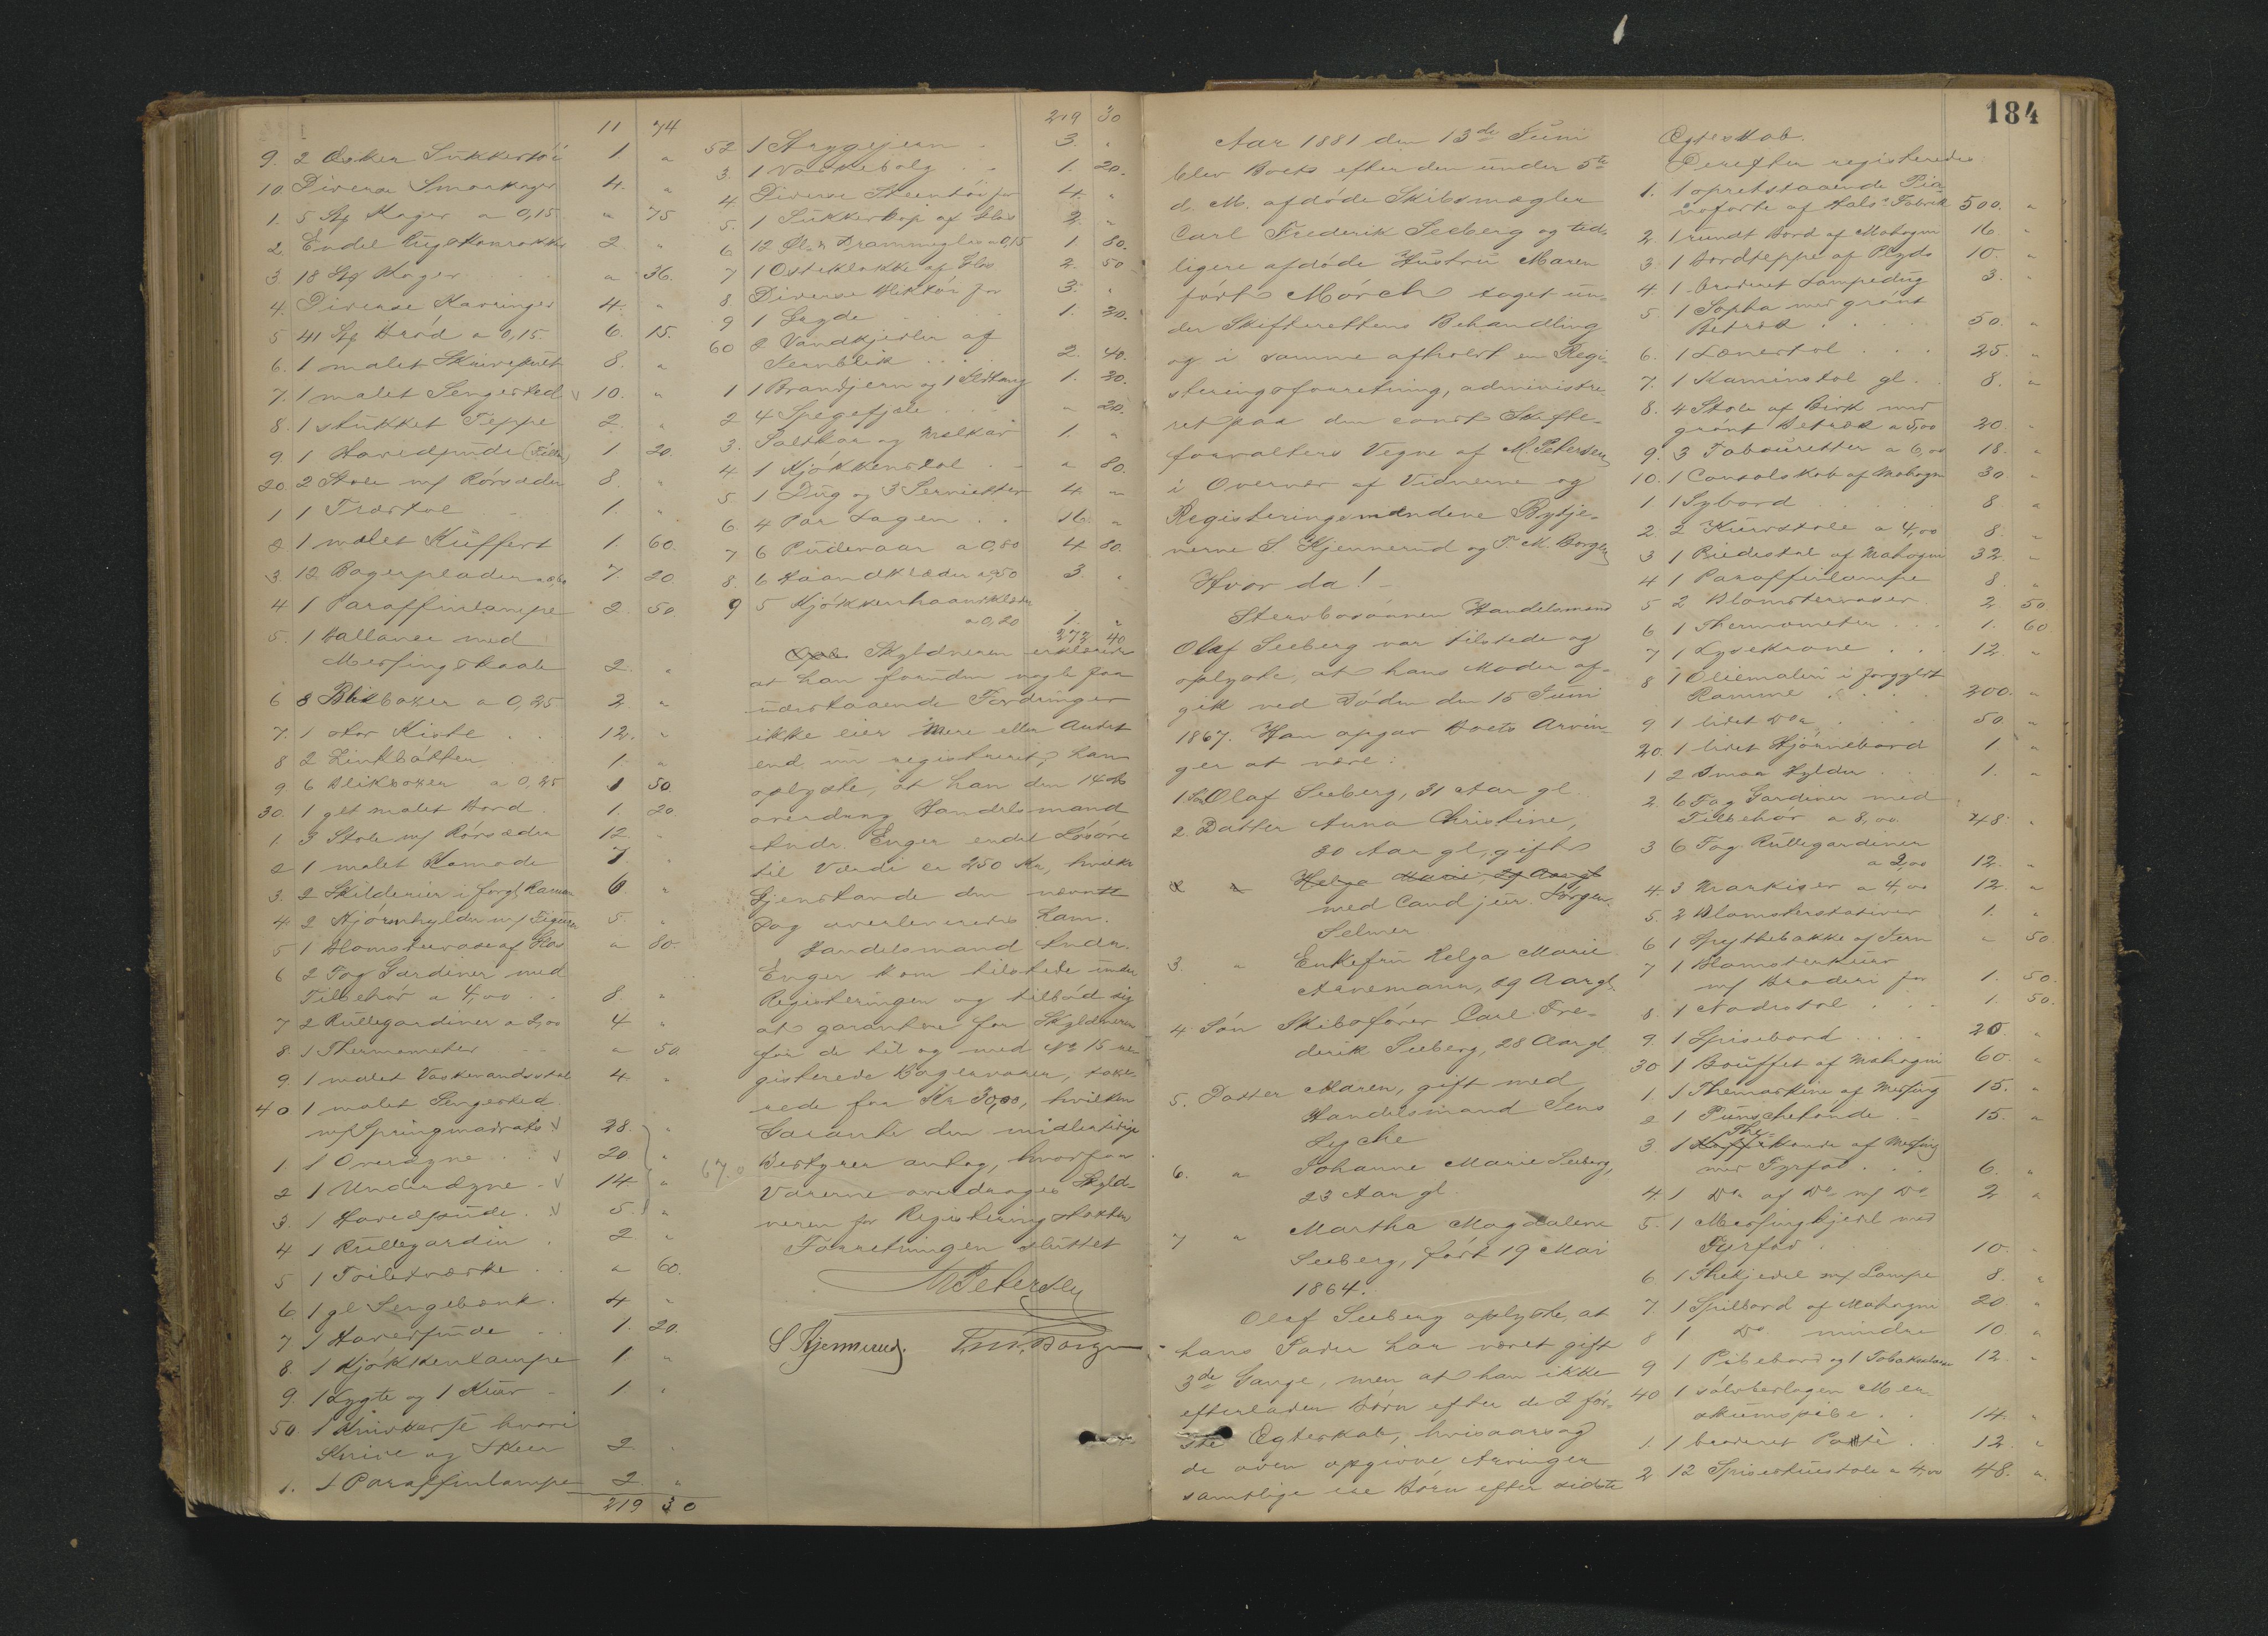 11 74
9. 2 Æsker Sukkertöi 1. "
10. Diverse Smaakager 4. "
1. 5 Stk Kager a 0,15 " 75
2. Endel Rugekonrokke 2. "
3. 18 Stk Kager " 36.
4. Diverse Kavringer 4. "
5 41 Stk Bröd a 0,15. 6. 15.
6. 1 malet Skrivepult 8. "
7. 1 malet Sengested 10. "
8. 1 stukket Teppe 2. "
9. 1 Hovedpude 1. 20.
20. 2 Stole m/ Rörsæder 8. "
1 1 Træstol 1. "
2. 1 malet Kuffert 1. 60.
3. 12 Bagerplader a 0,60 7. 20.
4 1 Paraffinlampe 2. 50.
5. 1 Ballance med
Messingskaale 2. "
6 8 Blikboxer a 0,25 2 "
7. 1 stor Kiste 12. "
8 2 Zinkbötter 1. "
9 6 Blikboxer a 0,25 1 50.
30. 1 glt malet Bord 1. 20
1. 3 Stole m/ Rörsæder 12. "
2 1 malet Komode 7. "
3. 2 Skilderier i forgl. Ramme 6 "
4 2 Hjörnehylder m/ Figurer 5. "
5 1 Blomstervase af Glas " 80.
6 2 Fag Gardiner med
Tilbehör a 4,00 8. "
7 2 Rullegardiner a 2,00 4 "
8. 1 Thermometer " 50.
9. 1 malet Vaskevandsstol 4. "
40 1 malet Sengested
m/ Springmadrats 28. "
1. 1 Overdyne 20 "
2 1 Underdyne 14 "
3. 1 Hovedpude 5. "
4 1 Rullegardin 2 "
5 1 Toiletværke " 60.
6 1 gl Sengebænk 4 "
7 1 Hovedpude 1. 20.
8. 1 Kjökkenlampe 1 "
9. 1 Lygte og 1 Kurv 1 "
50. 1 Knivkasse hvori
Knive og Skeer 2. "
1. 1 Paraffinlampe 2 "
219 30
219 30
52 1 Strygejern 3. "
3. 1 Vaskebalg 1. 20.
4 Diverse Steentöi for 4. "
5. 1 Sukkerkop af Glas 2. "
6 12 Öl & Drammeglas a 0,15 1. 80.
7 1 Osteklokke af Glas 2. 50
8. Diverse Bliktöi for 3. "
9 1 Gryde 1. 20.
60 2 Vandkjedler af
Jernblik 2. 40.
1 1 Brandjern og 1 Ildtang 1. 20.
2 4 Spegefjæle " 20.
3. Saltkar og Melkar 1. "
4 1 Kjökkenstol " 80.
5 1 Dug og 3 Servietter 4 "
6. 4 Par Lagen 16. "
7 6 Pudevaar a 0,80 4 80.
8. 6 Haandklæder a 0,50 3. "
9 5 Kjökkenhaandklæder
a 0,20 1. "
272 40
Skyldneren erklærede
at han foruden nogle faa
udestaaende Fordringer
ikke eier mere eller Andet
end nu registreret, han
oplyste, at han den 14de
overdrog Handelsmand
Andr. Enger endel Lösöre
til Værdi ca 250 Kr, hvilke
Gjenstande den nævnte
Dag overleveredes ham.
Handelsmand Andr.
Enger kom tilstede under
Registeringen og tilböd sig
at garantere for Skyldneren
for de til og med No 15 re-
gisterede Bagervarer, takse-
rede for Kr 30,00, hvilken
Garanti den midlertidige
67. Bestyrer antog, hvorfor
Varerne overdroges Skyld-
neren for Registeringstaxten
Forretningen sluttet
M Petersen
S Kjennerud. T. M. Borgen
184
Aar 1881 den 13de Juni
blev Boets efter den under 5te
d. M. afdöde Skibsmægler
Carl Frederik Seeberg og tid-
ligere afdöde Hustru Maren
födt Mörch taget un-
der Skifterettens Behandling
og i samme afholdt en Regi-
steringsforretning, administre-
ret paa den const Skifte-
forvalters Vegne af M. Petersen
i Overvær af Vidnerne og
Registeringsmændene Bytje-
nerne S Kjennerud og T. M. Borgen
Hvor da! -
Stervbosönnen Handelsmand
Olaf Seeberg var tilstede og
oplyste, at hans Moder af-
gik ved Döden den 15 Juni
1867. Han opgav Boets Arvin-
ger at være:
1. Sön Olaf Seeberg, 31 Aar gl
2. Datter Anna Christine,
30 Aar gl, gift
Helga Marie, 29 Aar gl
med Cand jur. Jörgen
Selmer
3. " Enkefru Helga Marie
Arnemann, 29 Aar gl.
4 Sön Skibsförer Carl Fre-
derik Seeberg, 28 Aar gl
5. Datter Maren, gift med
Handelsmand Jens
Lyche
6. " Johanne Marie Seeberg,
23 Aar gl.
7 " Martha Magdalene
Seeberg, födt 19 Mai
1864.
Olaf Seeberg oplyste, at
hans Fader har været gift
3de Gange, men at han ikke
efterlader Börn efter de 2 för-
ste Egteskab, hvisaarsag
de oven opgivne Arvinger
samtlige ere Börn efter sidste
Egteskab.
Derefter registeredes
1. 1 opretstaaende Pia-
noforte af Hals's Fabrik 500. "
2. 1 rundt Bord af Mahogni 16 "
3. 1 Bordteppe af Plyds 10. "
4. 1 broderet Lampedug 3. "
5 1 Sopha med grönt
Betræk 50. "
6. 1 Lænestol 25. "
7. 1 Kaminstol gl. 8. "
8. 4 Stole af Birk med
grönt Betræk a 5,00 20. "
9. 3 Tabouretter a 6,00 18. "
10. 1 Consolskab af Mahogni 30 "
1 1 Sybord 8 "
2. 2 Kurvstole a 4,00 8. "
3 1 Piedestal af Mahogni 32. "
4 1 Paraffinlampe 8. "
5 2 Blomstervaser 2 50.
6 1 Thermometer 1. 60
7 1 Lysekrone 12. "
8 1 Oliemaleri i forgyldt
Ramme 200. "
9 1 lidet Do 50. "
20. 1 lidet Hjörnebord 1 "
1 2 Smaa Hylder 1. "
2. 6 Fag Gardiner med
Tilbehör a 8,00. 48. "
3 6 Fag Rullegardiner
a 2,00 12. "
4. 3 Markiser a 4,00 12. "
5. 2 Blomsterstativer 1. "
6 1 Spyttebakke af Jern " 50
7 1 Blomsterkurv
m/ Broderi for 1. 50.
8. 1 Nodestol 1. 50.
9. 1 Spisebord 20. "
30 1 Bouffet af Mahogni 60. "
1. 1 Themaskine af Messing 15. "
2 1 Punschekande 15. "
3 1 Thekande af Messing
med Fyrfad 6. "
4 1 Do af Do m/ Do 2 "
5. 1 Messingkjedel med
Fyrfad 10. "
6 1 Thekjedel m/ Lampe 8. "
7. 1 Spillbord af Mahogni 20. "
8 1 Do mindre 10. "
9 1 Pibebord og 1 Tobaksdaase 12. "
40 1 sölvbeslagen Mer-
skumspibe 14. "
1. 1 broderet 12. "
2 12 Spisestuestole a 4,00 48. "